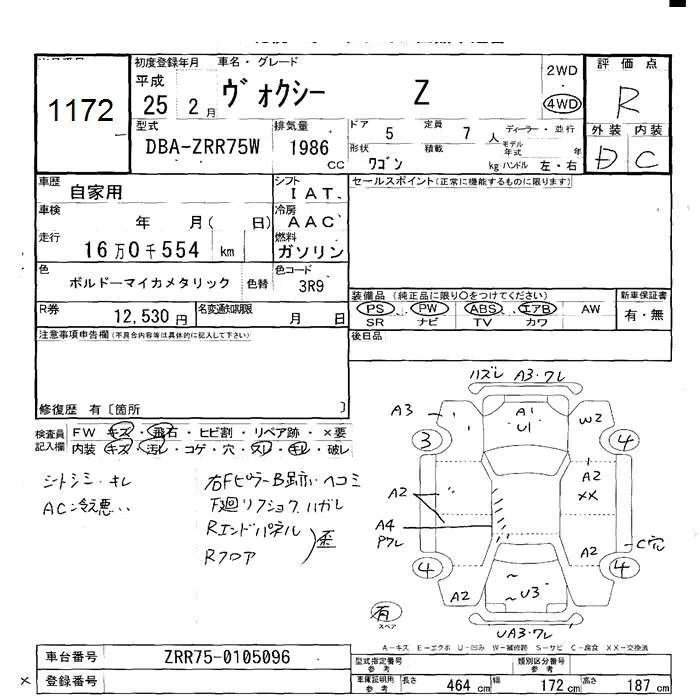 1172
初度登録年月 車名・グレード
平成 25 2月 ヴォクシー Z
2WD
4WD
評価点
R
外装 内装
D C
型式 排気量 ドア 5 定員 7人 ディーラー・並行
DBA-ZRR75W 1986 CC 形状 ワゴン 積載 kg モデル年式 年 ハンドル 左・右
車歴 自家用 シフト IAT
セールスポイント(正常に機能するものに限ります)
車検 年 月( 日) 冷房 AAC
走行 16万0千554 km 燃料 ガソリン
色 ボルドーマイカメタリック 色替 色コード 3R9
装備品 (純正品に限り○をつけてください) 新車保証書
PS PW ABS エアB AW 有・無
SR ナビ TV カワ
R券 12,530円 名変通知期限 月 日
後日品
注意事項申告欄(不具合内容等は具体的に記入して下さい)
修復歴 有〔箇所 〕
検査員記入欄 FW キズ・飛石・ヒビ割・リペア跡・×要
内装 キズ・汚レ・コゲ・穴・スレ・キレ・破レ
シトシミ・キレ
AC冷え悪
右FピラーB跡 ヘコミ
下廻リフショク ハガレ
Rエンドパネル
Rフロア
歪
ハズレ A3・ワレ
A3 A1 U1 W2
3 4
A2 A2 XX
A4 ワレ
A2 C穴
4 4
A2 U3 A2
UA3・ワレ
有
スペア
A-キズ E-エクボ U-凹み W-補修跡 S-サビ C-腐食 XX-交換済
車台番号 ZRR75-0105096
型式指定番号 参考 類別区分番号 参考
× 登録番号
車庫証明用 参考 長さ 464 cm 幅 172 cm 高さ 187 cm